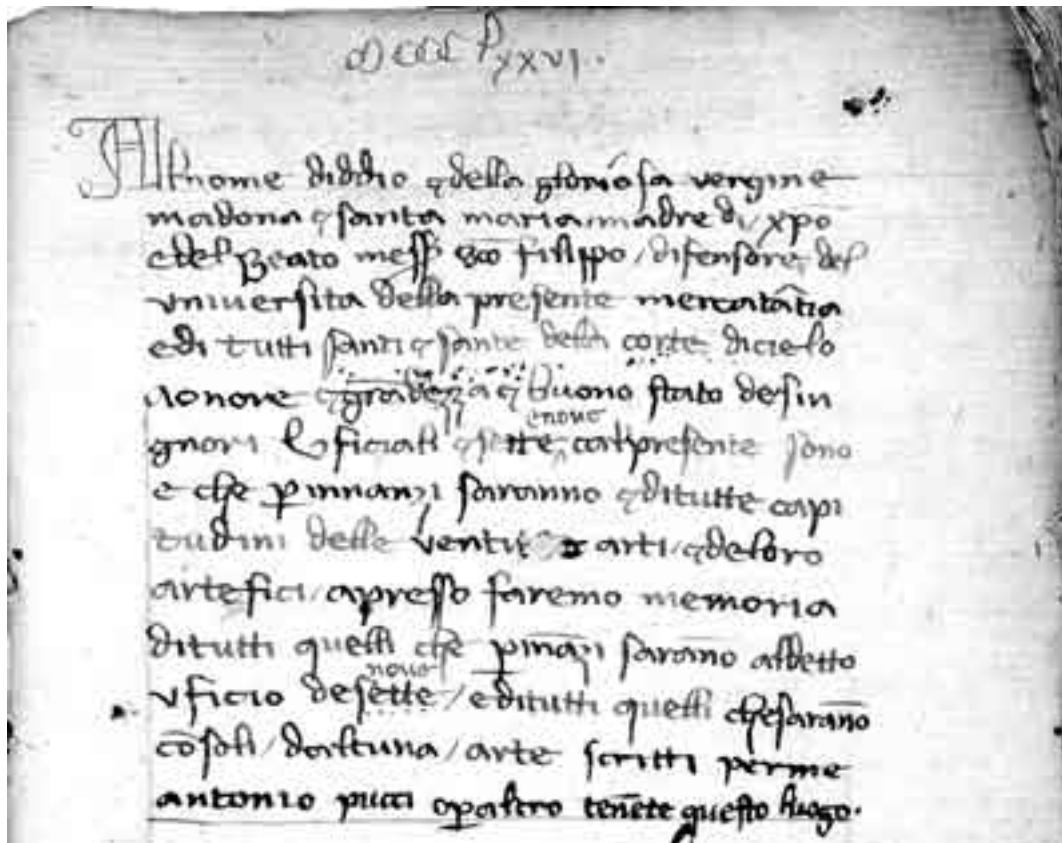 MCCCLXXVI.
Al nome diddio e della gloriosa vergine
madona e santa maria / madre di / xpo
e del Beato mess sco filippo / difensore del
universita della presente mercatatia
e di tutti santi e sante della corte di cielo
a onore e gradezza e buono stato de sin
gnori Uficiali e sette enove cal presente sono
e che p innanzi saranno e di tutte capi
tudini delle venti arti / e de loro
artefici / apresso faremo memoria
di tutti quelli che p inazi sarano al detto
uficio de sette nove / e di tutti quelli che sarano
cosoli / dalcuna / arte scritti per me
antonio pucci o p altro tenete questo luogo.